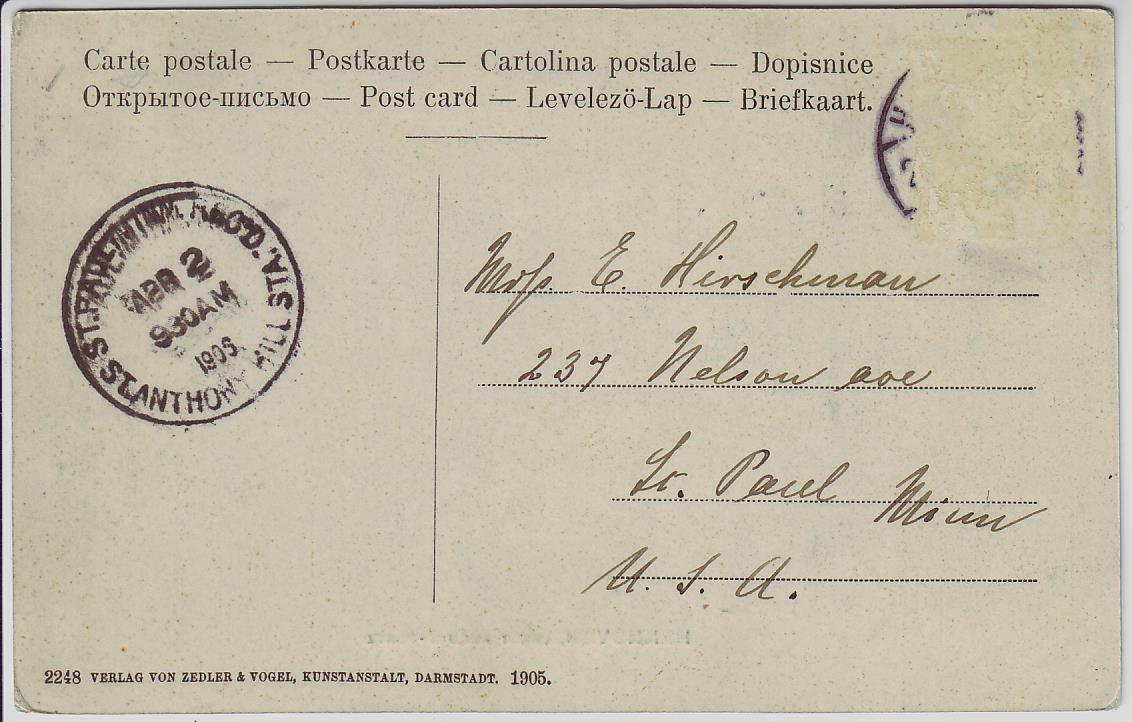 Carte postale — Postkarte — Cartolina postale — Dopisnice
Открытое-письмо — Post card — Levelezö-Lap — Briefkaart.
ST. PAUL, MINN. REC'D.
ST. ANTHONY HILL STA.
APR 2
930AM
1906
E. Hirschman
237 Nelson ave
St. Paul Minn
U. S. A.
2248 VERLAG VON ZEDLER & VOGEL, KUNSTANSTALT, DARMSTADT. 1905.